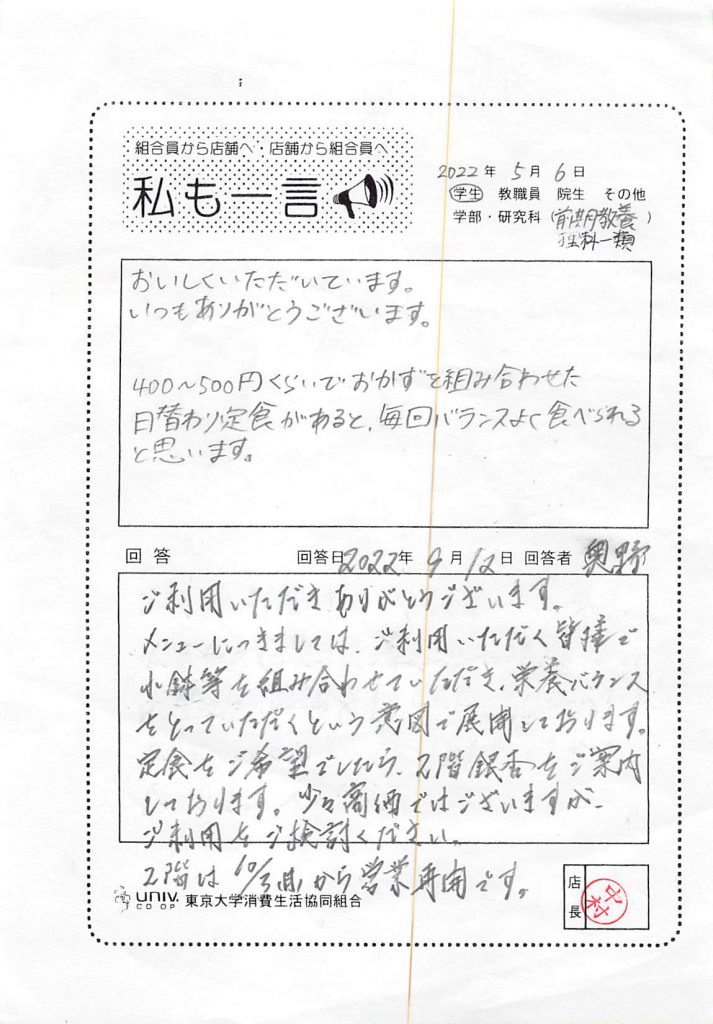 組合員から店舗へ・店舗から組合員へ
私も一言
2022年 5月 6日
学生 教職員 院生 その他
学部・研究科(前期教養
理科一類)
おいしくいただいています。
いつもありがとうございます。
400〜500円くらいでおかずを組み合わせた
日替わり定食があると、毎回バランスよく食べられる
と思います。
回答 回答日2022年 9月12日 回答者 奥野
ご利用いただきありがとうございます。
メニューにつきましては、ご利用いただく皆様で
小鉢等を組み合わせていただき、栄養バランス
をとっていただくという意図で展開しております。
定食をご希望でしたら、2階銀杏をご案内
しております。少々高価ではございますが、
ご利用をご検討ください。
2階は10/3(月)から営業再開です。
UNIV. CO-OP 東京大学消費生活協同組合
店長 中村